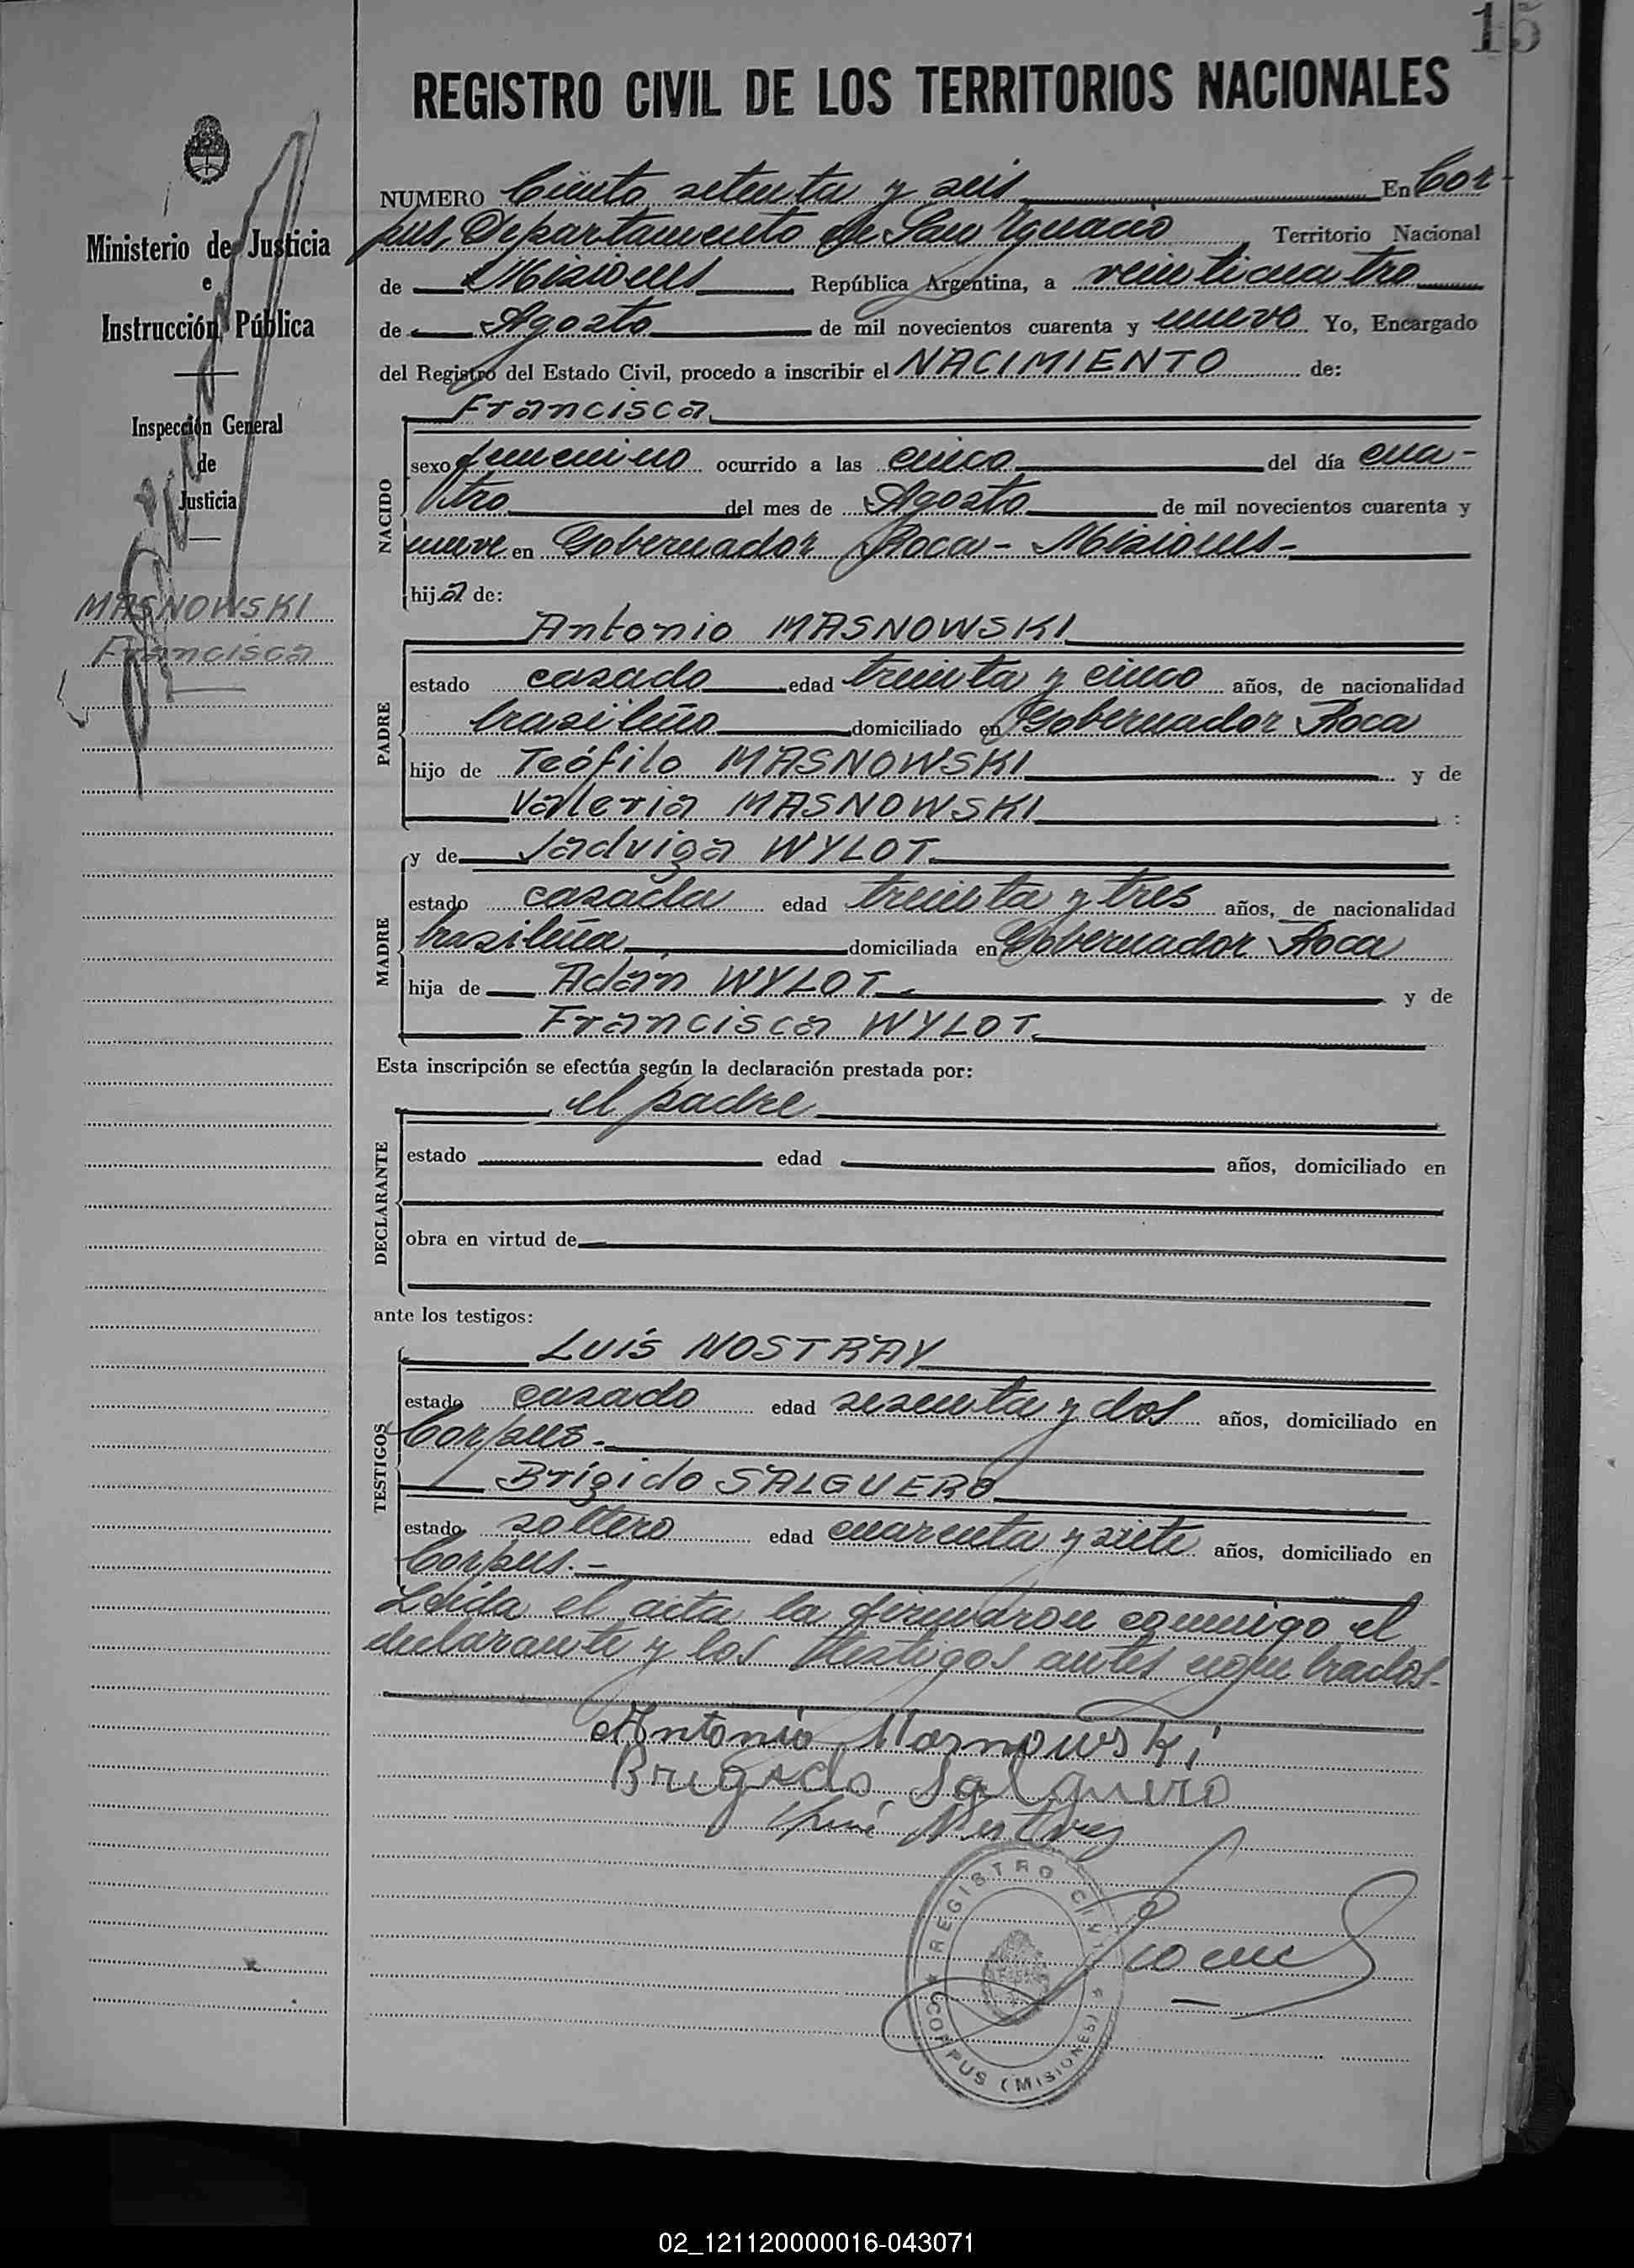 15
REGISTRO CIVIL DE LOS TERRITORIOS NACIONALES
Ministerio de Justicia
e
Instrucción Pública
Inspección General
de
Justicia
MASNOWSKI
Francisca
NUMERO Ciento setenta y seis En Cor-
pus, Departamento de San Ygnacio Territorio Nacional
de Misiones República Argentina, a veinticuatro
de Agosto de mil novecientos cuarenta y nueve Yo, Encargado
del Registro del Estado Civil, procedo a inscribir el NACIMIENTO de:
Francisca
NACIDO
sexo femenino ocurrido a las cinco del día cua-
tro del mes de Agosto de mil novecientos cuarenta y
nueve en Gobernador Roca - Misiones.-
hija de:
Antonio MASNOWSKI
PADRE
estado casado edad treinta y cinco años, de nacionalidad
brasileño domiciliado en Gobernador Roca
hijo de Teófilo MASNOWSKI y de
Valeria MASNOWSKI
MADRE
y de Jadviga WYLOT
estado casada edad treinta y tres años, de nacionalidad
brasileña domiciliada en Gobernador Roca
hija de Adán WYLOT. y de
Francisca WYLOT.
Esta inscripción se efectúa según la declaración prestada por:
el padre
DECLARANTE
estado edad años, domiciliado en
obra en virtud de
ante los testigos:
Luis NOSTRAY
TESTIGOS
estado casado edad sesenta y dos años, domiciliado en
Corpus.-
Brígido SALGUERO
estado soltero edad cuarenta y siete años, domiciliado en
Corpus.-
Leída el acta la firmaron conmigo el
declarante y los testigos antes nombrados.-
Antonio Masnowski
Brigido Salguero
REGISTRO CIVIL
CORPUS (MISIONES)
02_121120000016-043071